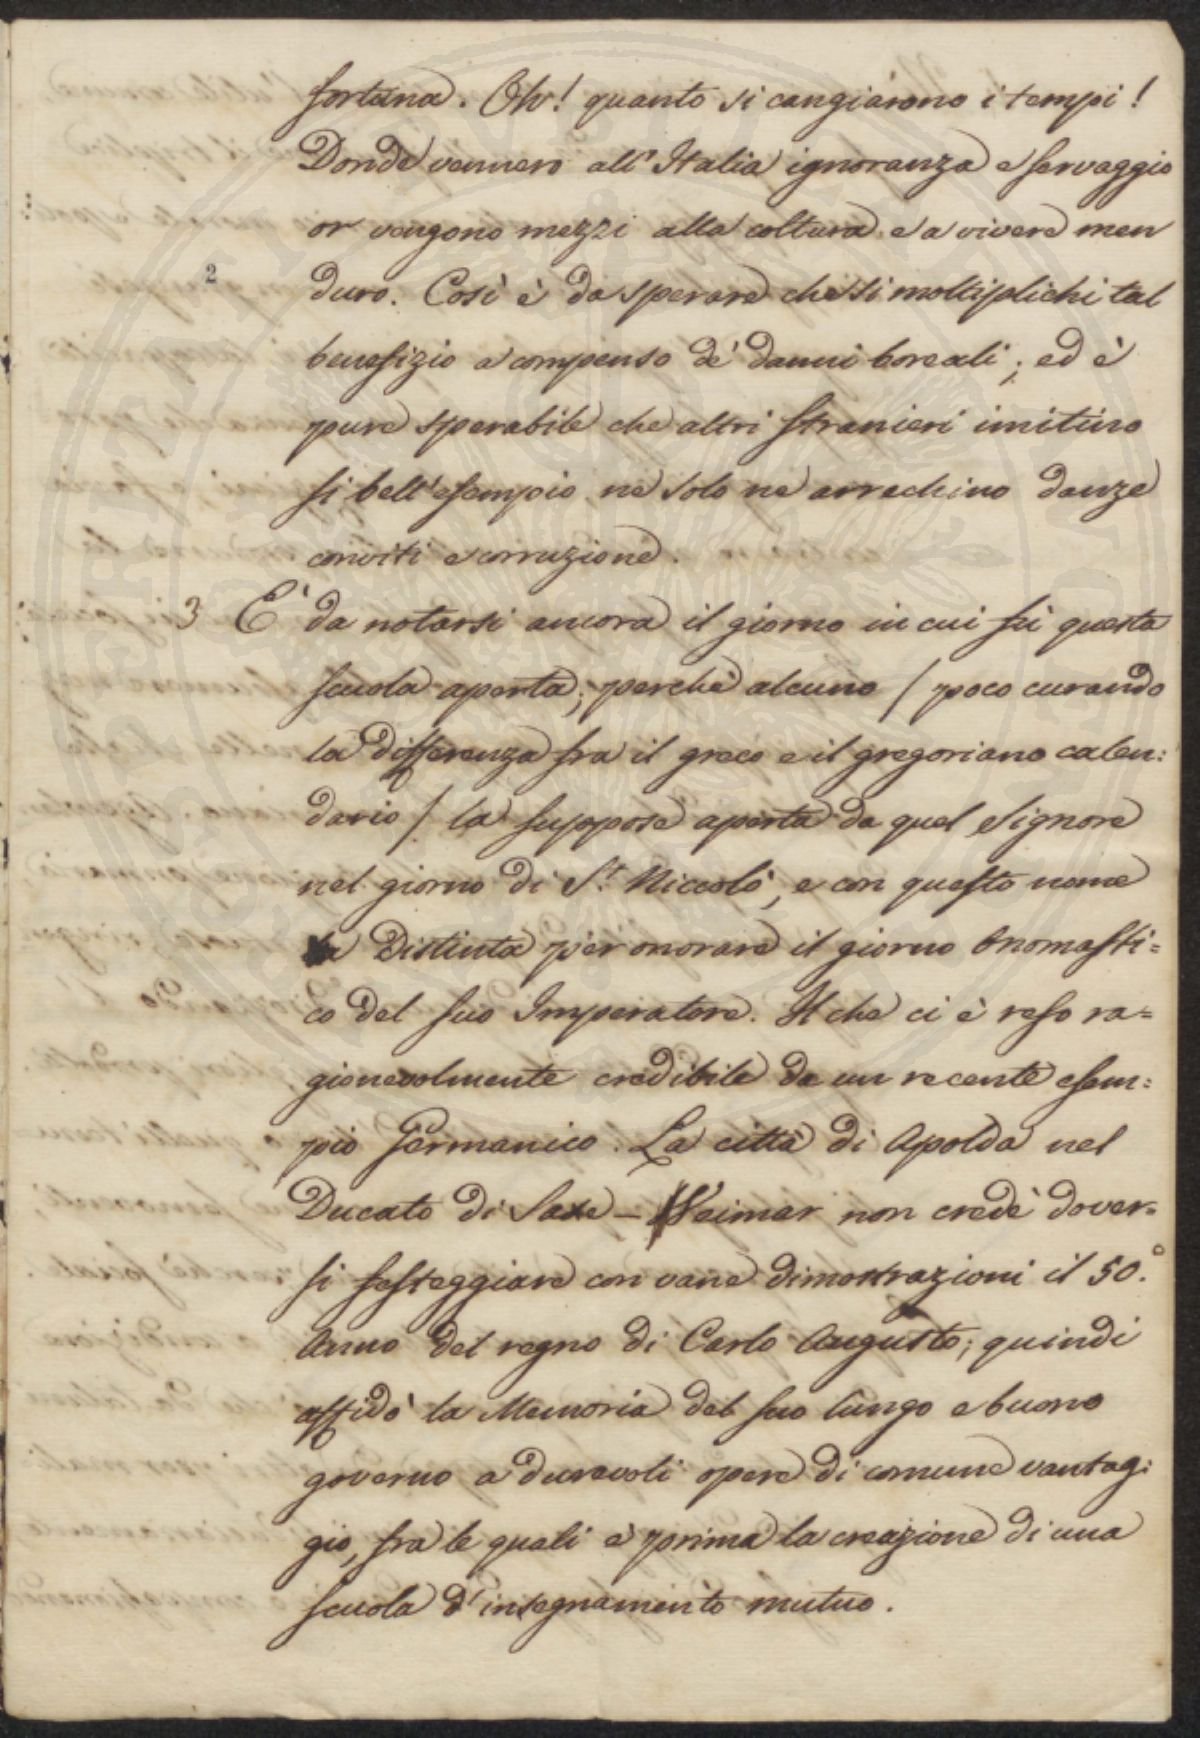 fortuna. Oh! quanto si cangiarono i tempi!
Donde vennero all'Italia ignoranza e servaggio
or vengono mezzi alla coltura e a vivere men
2 duro. Così è da sperare che si moltiplichi tal
benefizio a compenso de' danni boreali; ed è
pure sperabile che altri stranieri imitino
sì bell'esempio, nè solo ne arrechino danze
conviti e corruzione.
3 E' da notarsi ancora il giorno in cui fù questa
scuola aperta; perchè alcuno / poco curando
la differenza fra il greco e il gregoriano calen:
dario / la suppose aperta da quel Signore
nel giorno di S.t Niccolò, e con questo nome
distinta per onorare il giorno Onomasti=
co del suo Imperatore. Il che ci è reso ra=
gionevolmente credibile da un recente esem:
pio Germanico. La città di Apolda nel
Ducato di Saxe-Weimar non credè dover=
si festeggiare con vane dimostrazioni il 50.°
Anno del regno di Carlo Augusto; quindi
affidò la Memoria del suo lungo e buono
governo a durevoli opere di comune vantag:
gio, fra le quali è prima la creazione di una
scuola d'insegnamento mutuo.